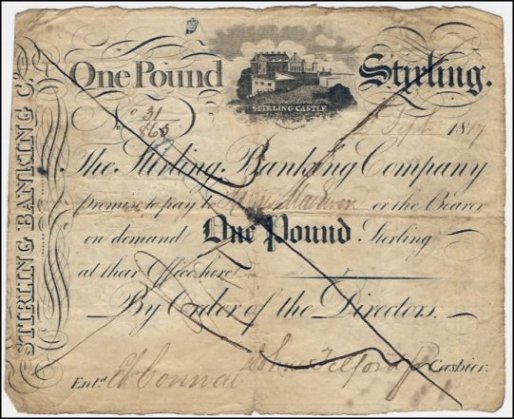 STIRLING BANKING Cº.
One Pound Stirling.
STIRLING CASTLE
Nº 31/863
Sept. 1817
The Stirling Banking Company
promise to pay to or the Bearer
on demand One Pound Sterling
at their Office here
By Order of the Directors.
Entd. Cashier.